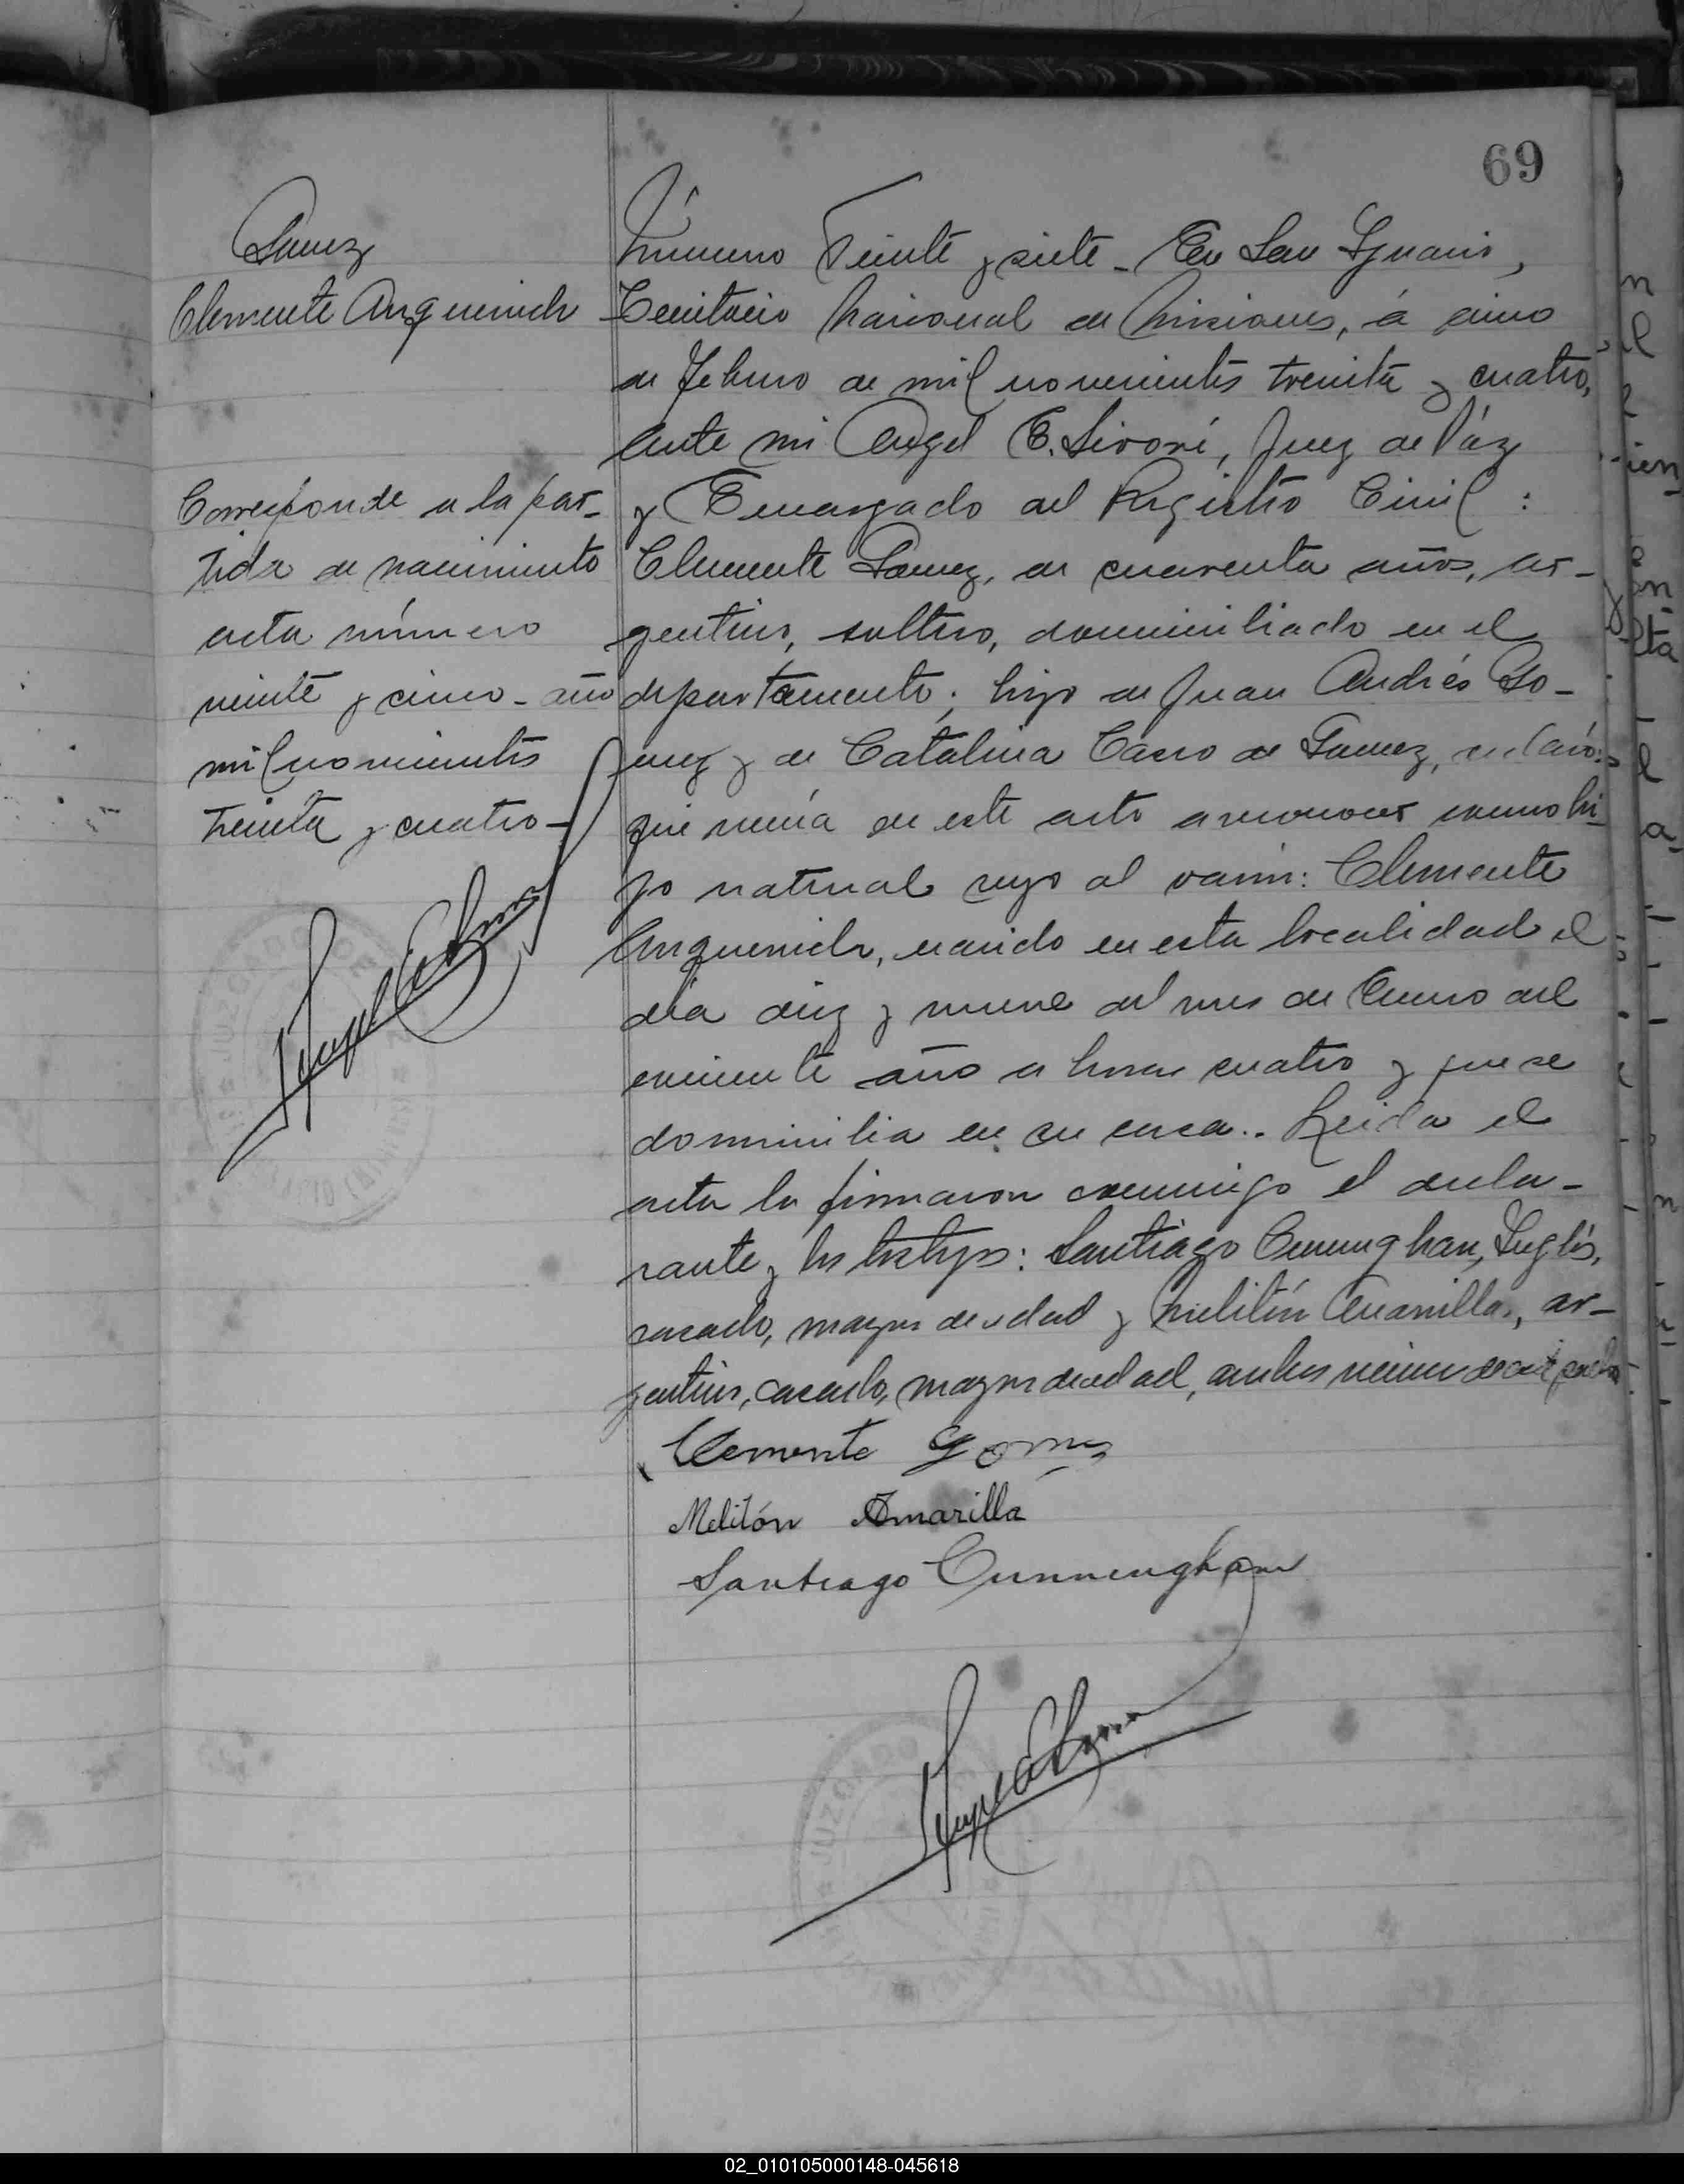 69
Gomez
Clemente Arquenich
Corresponde a la par-
tida de nacimiento
acta número
veinte y cinco - año
mil novecientos
treinta y cuatro -
Número Veinte y siete - En San Ignacio,
Territorio Nacional de Misiones, á cinco
de Febrero de mil novecientos treinta y cuatro,
ante mi Angel E. Sivori, Juez de Páz
y Encargado del Registro Civil :
Clemente Gomez, de cuarenta años, ar-
gentino, soltero, domiciliado en el
departamento; hijo de Juan Andrés Go-
mez y de Catalina Cano de Gomez, declaró:
que venía en este acto a reconocer como hi-
jo natural suyo al varon: Clemente
Arquenich, nacido en esta localidad el
día diez y nueve del mes de Enero del
corriente año a horas cuatro y que se
domicilia en su casa.. Leida el
acta la firmaron conmigo el decla-
rante y los testigos: Santiago Cunnghan, Inglés,
casado, mayor de edad y Melitón Amarilla, ar-
gentino, casado, mayor de edad, ambos vecinos de este pueblo
Clemente Gomez
Melitón Amarilla
Santiago Cunningham
JUZGADO
JUZGADO
02_010105000148-045618